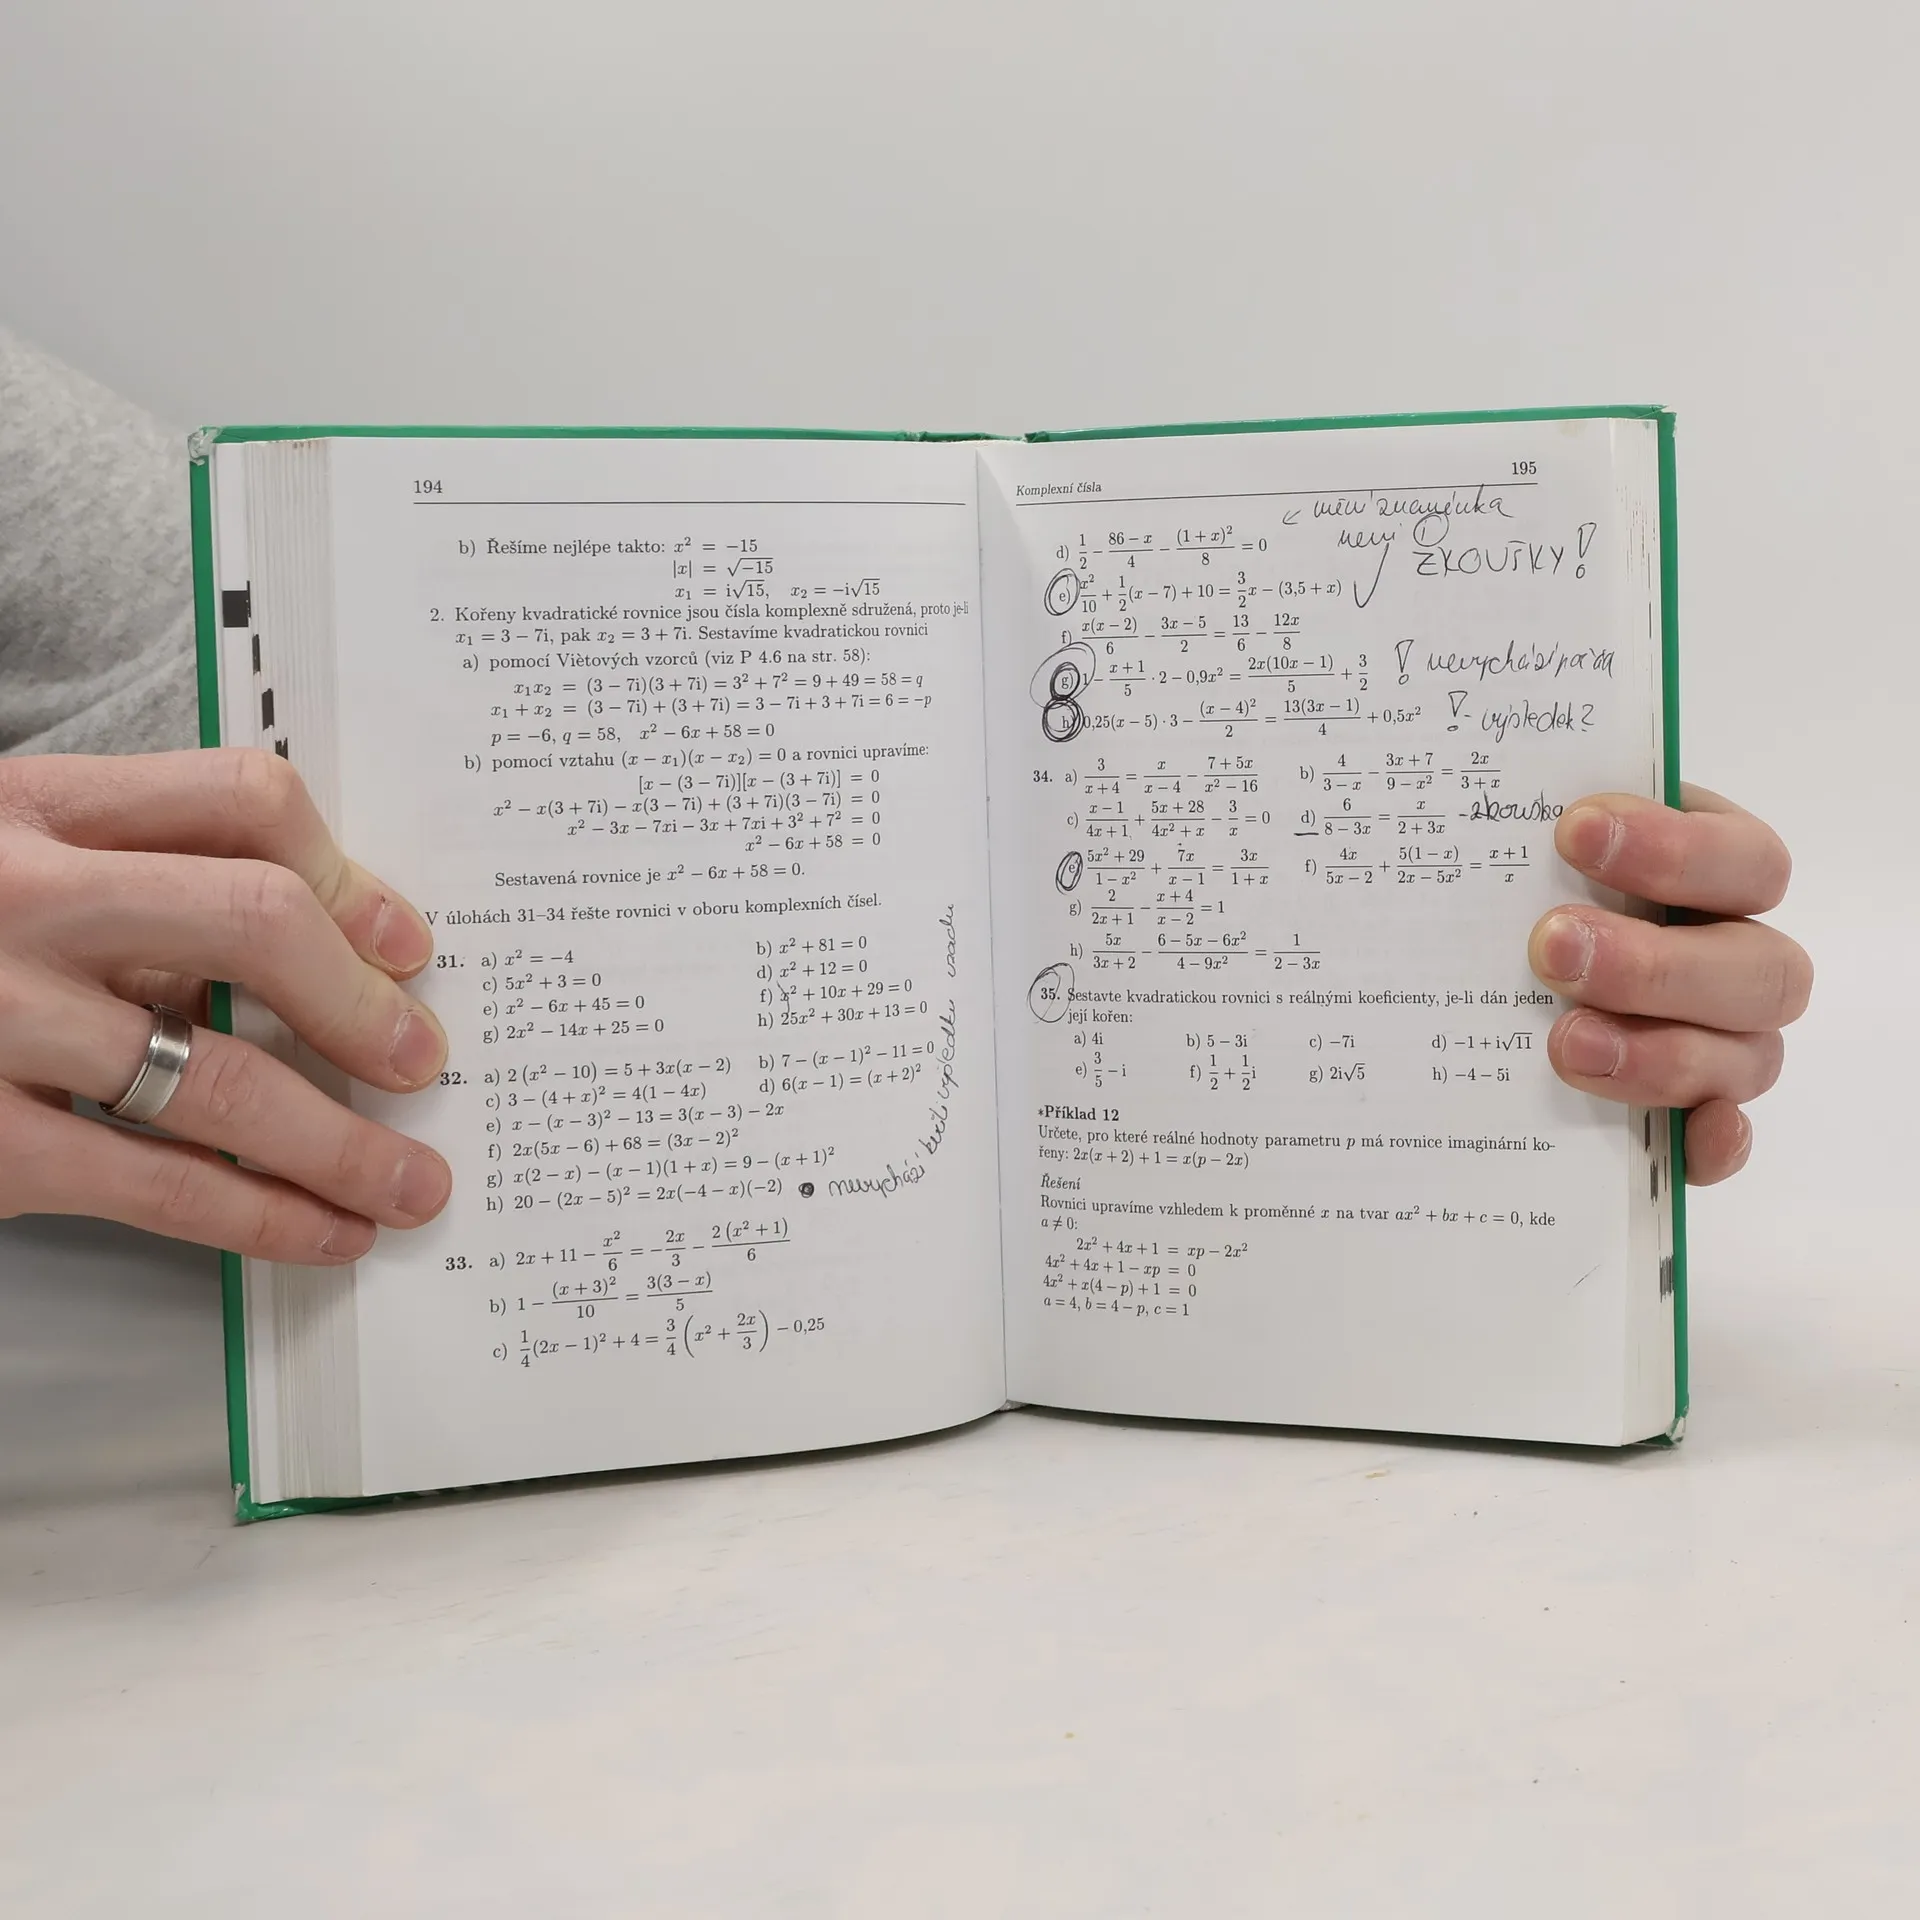 194
b) Řešíme nejlépe takto: x² = −15
|x| = √−15
x₁ = i√15, x₂ = −i√15
2. Kořeny kvadratické rovnice jsou čísla komplexně sdružená, proto je-li
x₁ = 3 − 7i, pak x₂ = 3 + 7i. Sestavíme kvadratickou rovnici
a) pomocí Viètových vzorců (viz P 4.6 na str. 58):
x₁x₂ = (3 − 7i)(3 + 7i) = 3² + 7² = 9 + 49 = 58 = q
x₁ + x₂ = (3 − 7i) + (3 + 7i) = 3 − 7i + 3 + 7i = 6 = −p
p = −6, q = 58, x² − 6x + 58 = 0
b) pomocí vztahu (x − x₁)(x − x₂) = 0 a rovnici upravíme:
[x − (3 − 7i)][x − (3 + 7i)] = 0
x² − x(3 + 7i) − x(3 − 7i) + (3 + 7i)(3 − 7i) = 0
x² − 3x − 7xi − 3x + 7xi + 3² + 7² = 0
x² − 6x + 58 = 0
Sestavená rovnice je x² − 6x + 58 = 0.
V úlohách 31–34 řešte rovnici v oboru komplexních čísel.
31. a) x² = −4 b) x² + 81 = 0
c) 5x² + 3 = 0 d) x² + 12 = 0
e) x² − 6x + 45 = 0 f) x² + 10x + 29 = 0
g) 2x² − 14x + 25 = 0 h) 25x² + 30x + 13 = 0
32. a) 2(x² − 10) = 5 + 3x(x − 2) b) 7 − (x − 1)² − 11 = 0
c) 3 − (4 + x)² = 4(1 − 4x) d) 6(x − 1) = (x + 2)²
e) x − (x − 3)² − 13 = 3(x − 3) − 2x
f) 2x(5x − 6) + 68 = (3x − 2)²
g) x(2 − x) − (x − 1)(1 + x) = 9 − (x + 1)²
h) 20 − (2x − 5)² = 2x(−4 − x)(−2) nevychází kvůli výsledku vzadu
33. a) 2x + 11 − x²/6 = −2x/3 − 2(x² + 1)/6
b) 1 − (x + 3)²/10 = 3(3 − x)/5
c) 1/4(2x − 1)² + 4 = 3/4(x² + 2x/3) − 0,25
Komplexní čísla 195
mění znaménka
není
ZKOUŠKY!
d) 1/2 − (86 − x)/4 − (1 + x)²/8 = 0
e) x²/10 + 1/2(x − 7) + 10 = 3/2x − (3,5 + x)
f) x(x − 2)/6 − (3x − 5)/2 = 13/6 − 12x/8
g) 1 − (x + 1)/5 · 2 − 0,9x² = 2x(10x − 1)/5 + 3/2 ! nevychází
h) 0,25(x − 5) · 3 − (x − 4)²/2 = 13(3x − 1)/4 + 0,5x² ! - výsledek?
34. a) 3/(x + 4) = x/(x − 4) − (7 + 5x)/(x² − 16) b) 4/(3 − x) − (3x + 7)/(9 − x²) = 2x/(3 + x)
c) (x − 1)/(4x + 1) + (5x + 28)/(4x² + x) − 3/x = 0 d) 6/(8 − 3x) = x/(2 + 3x) - zkouška
e) (5x² + 29)/(1 − x²) + 7x/(x − 1) = 3x/(1 + x) f) 4x/(5x − 2) + 5(1 − x)/(2x − 5x²) = (x + 1)/x
g) 2/(2x + 1) − (x + 4)/(x − 2) = 1
h) 5x/(3x + 2) − (6 − 5x − 6x²)/(4 − 9x²) = 1/(2 − 3x)
35. Sestavte kvadratickou rovnici s reálnými koeficienty, je-li dán jeden
její kořen:
a) 4i b) 5 − 3i c) −7i d) −1 + i√11
e) 3/5 − i f) 1/2 + 1/2i g) 2i√5 h) −4 − 5i
*Příklad 12
Určete, pro které reálné hodnoty parametru p má rovnice imaginární ko-
řeny: 2x(x + 2) + 1 = x(p − 2x)
Řešení
Rovnici upravíme vzhledem k proměnné x na tvar ax² + bx + c = 0, kde
a ≠ 0:
2x² + 4x + 1 = xp − 2x²
4x² + 4x + 1 − xp = 0
4x² + x(4 − p) + 1 = 0
a = 4, b = 4 − p, c = 1